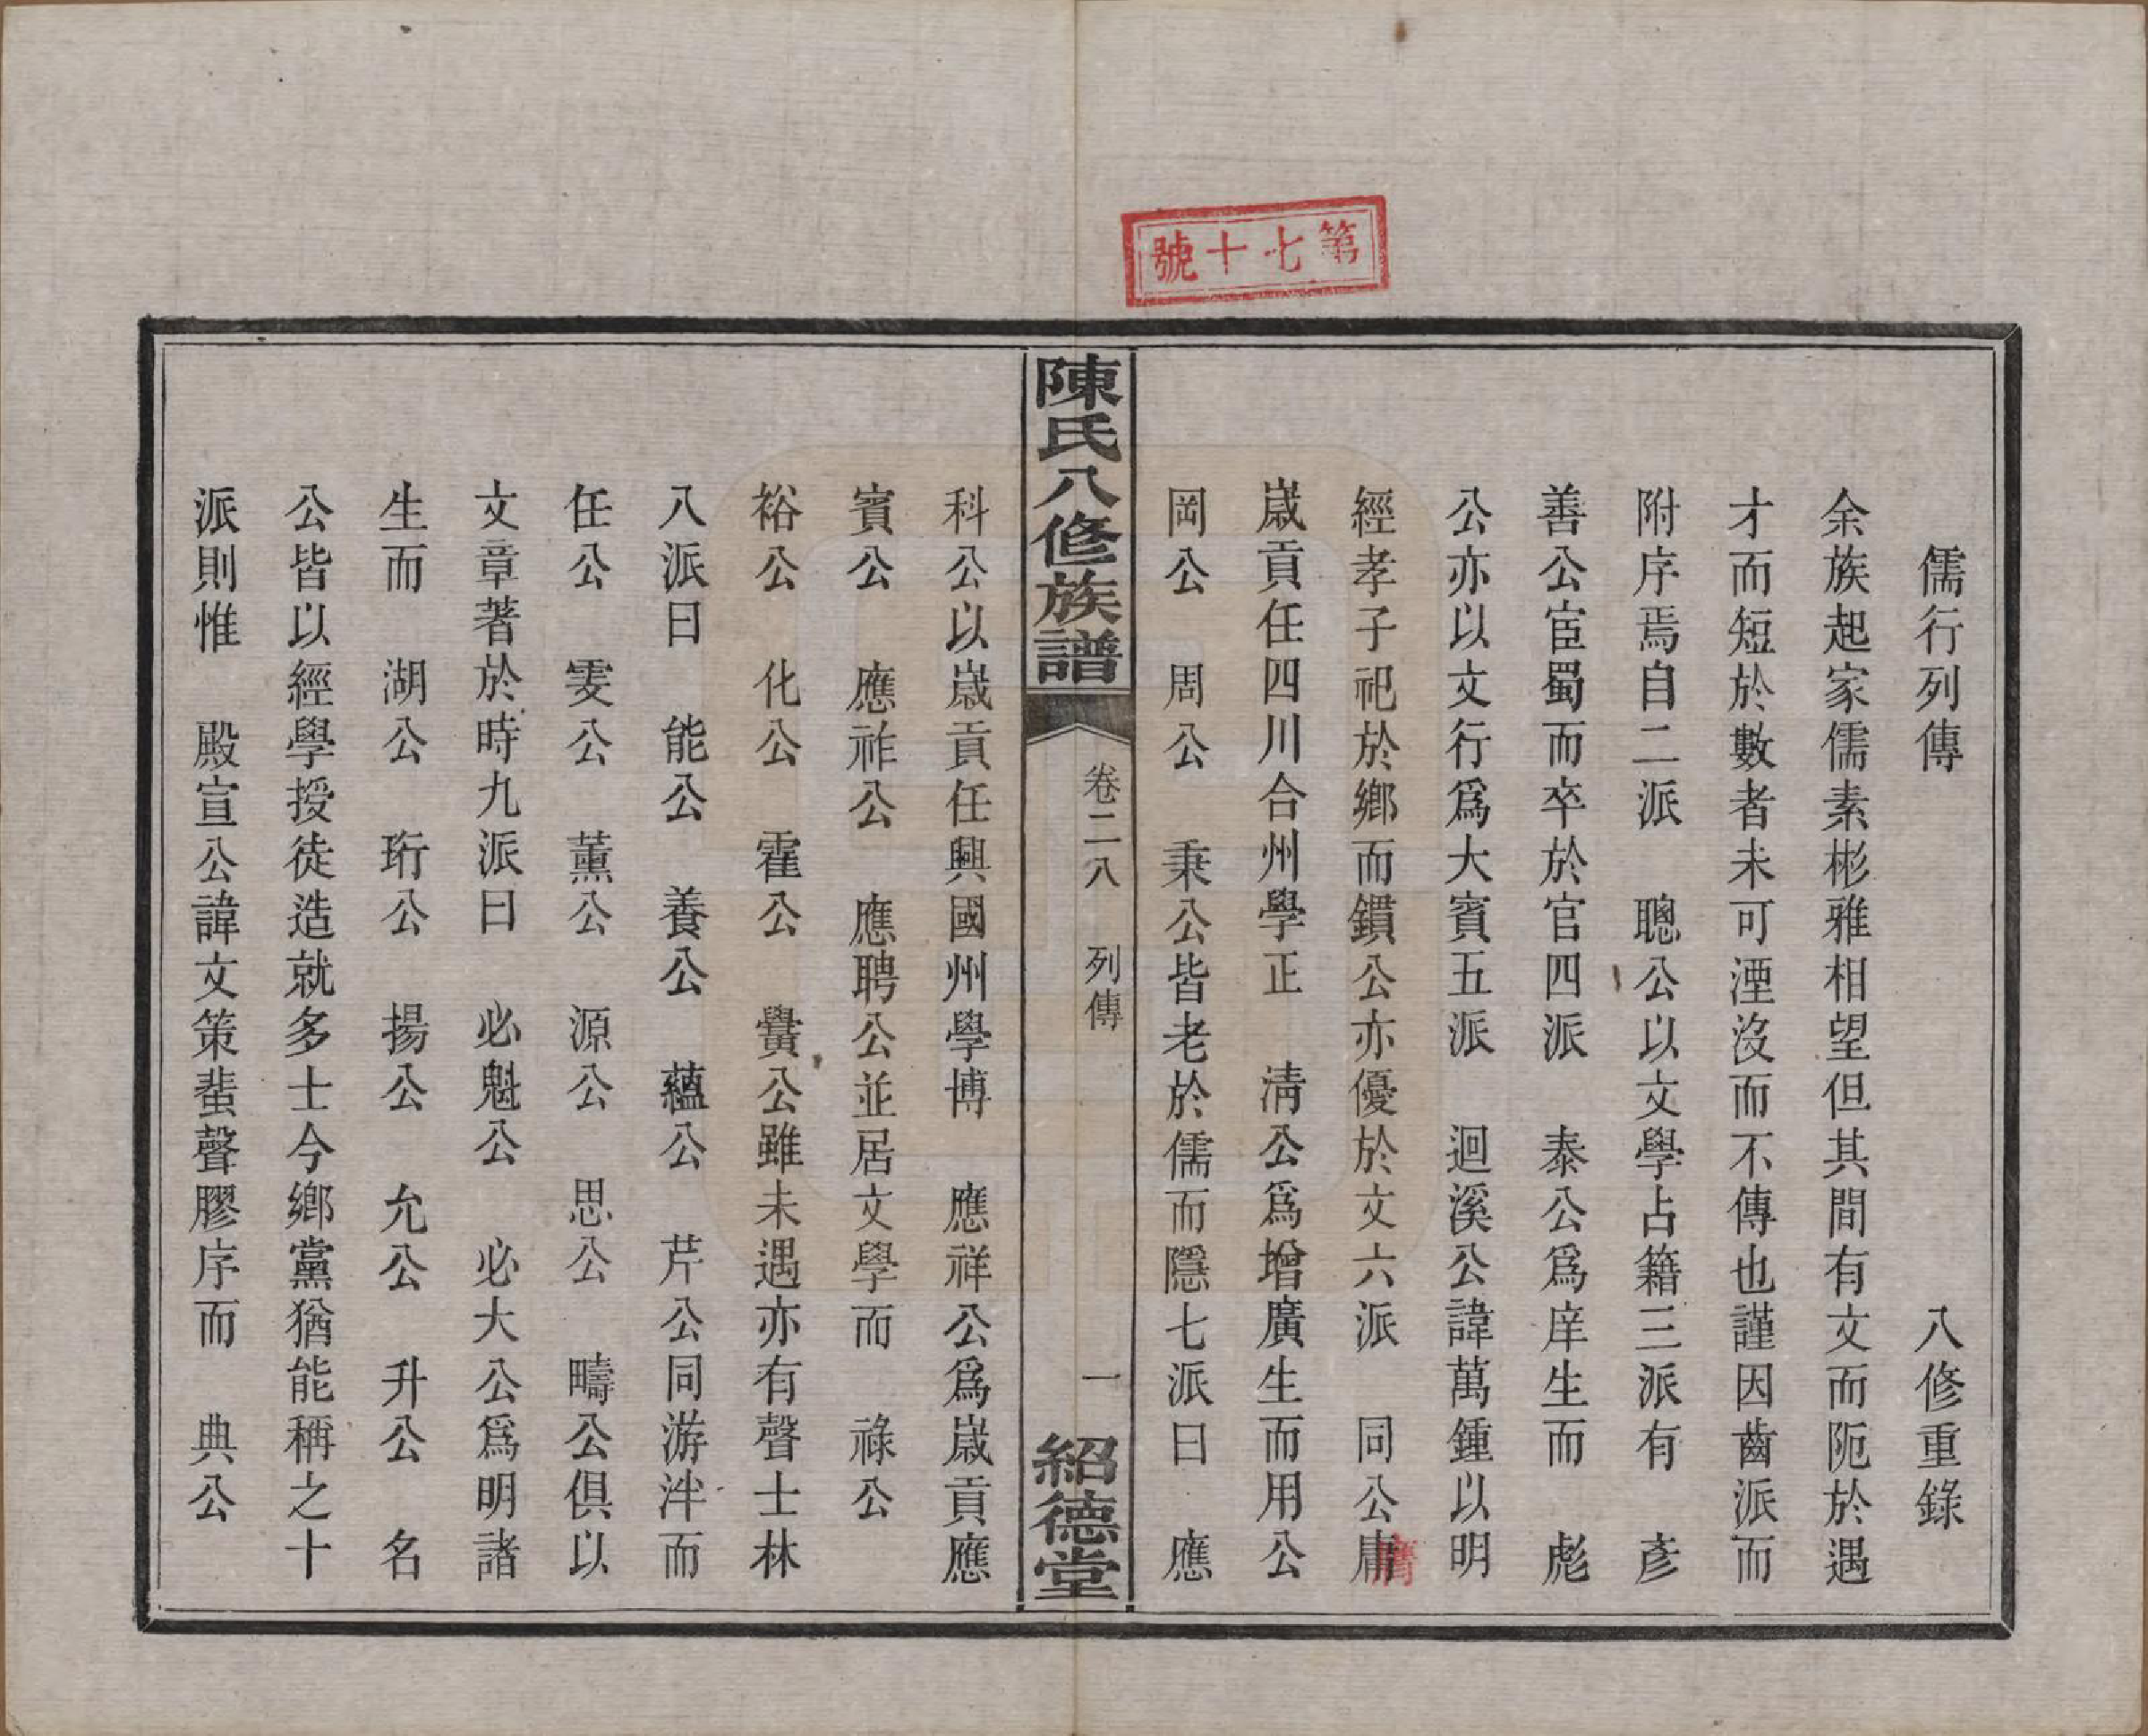 第七十號
儒行列傳　八修重錄
余族起家儒素彬雅相望但其間有文而阨於遇
才而短於數者未可湮沒而不傳也謹因齒派而
附序焉自二派　聰公以文學占籍三派有　彥
善公宦蜀而卒於官四派　泰公爲庠生而　彪
公亦以文行爲大賓五派　迴溪公諱萬鍾以明
經孝子祀於鄉而鑽公亦優於文六派　同公膺
歲貢任四川合州學正　淸公爲增廣生而用公
岡公　周公　秉公皆老於儒而隱七派曰　應
陳氏八修族譜　卷二八　列傳　一　紹德堂
科公以歲貢任興國州學博　應祥公爲歲貢應
賓公　應祚公　應聘公並居文學而　祿公
裕公　化公　霍公　黌公雖未遇亦有聲士林
八派曰　能公　養公　蘊公　芹公同游泮而
任公　雯公　薰公　源公　思公　疇公俱以
文章著於時九派曰　必魁公　必大公爲明諸
生而　湖公　珩公　揚公　允公　升公　名
公皆以經學授徒造就多士今鄉黨猶能稱之十
派則惟　殿宣公諱文策蜚聲膠序而　典公